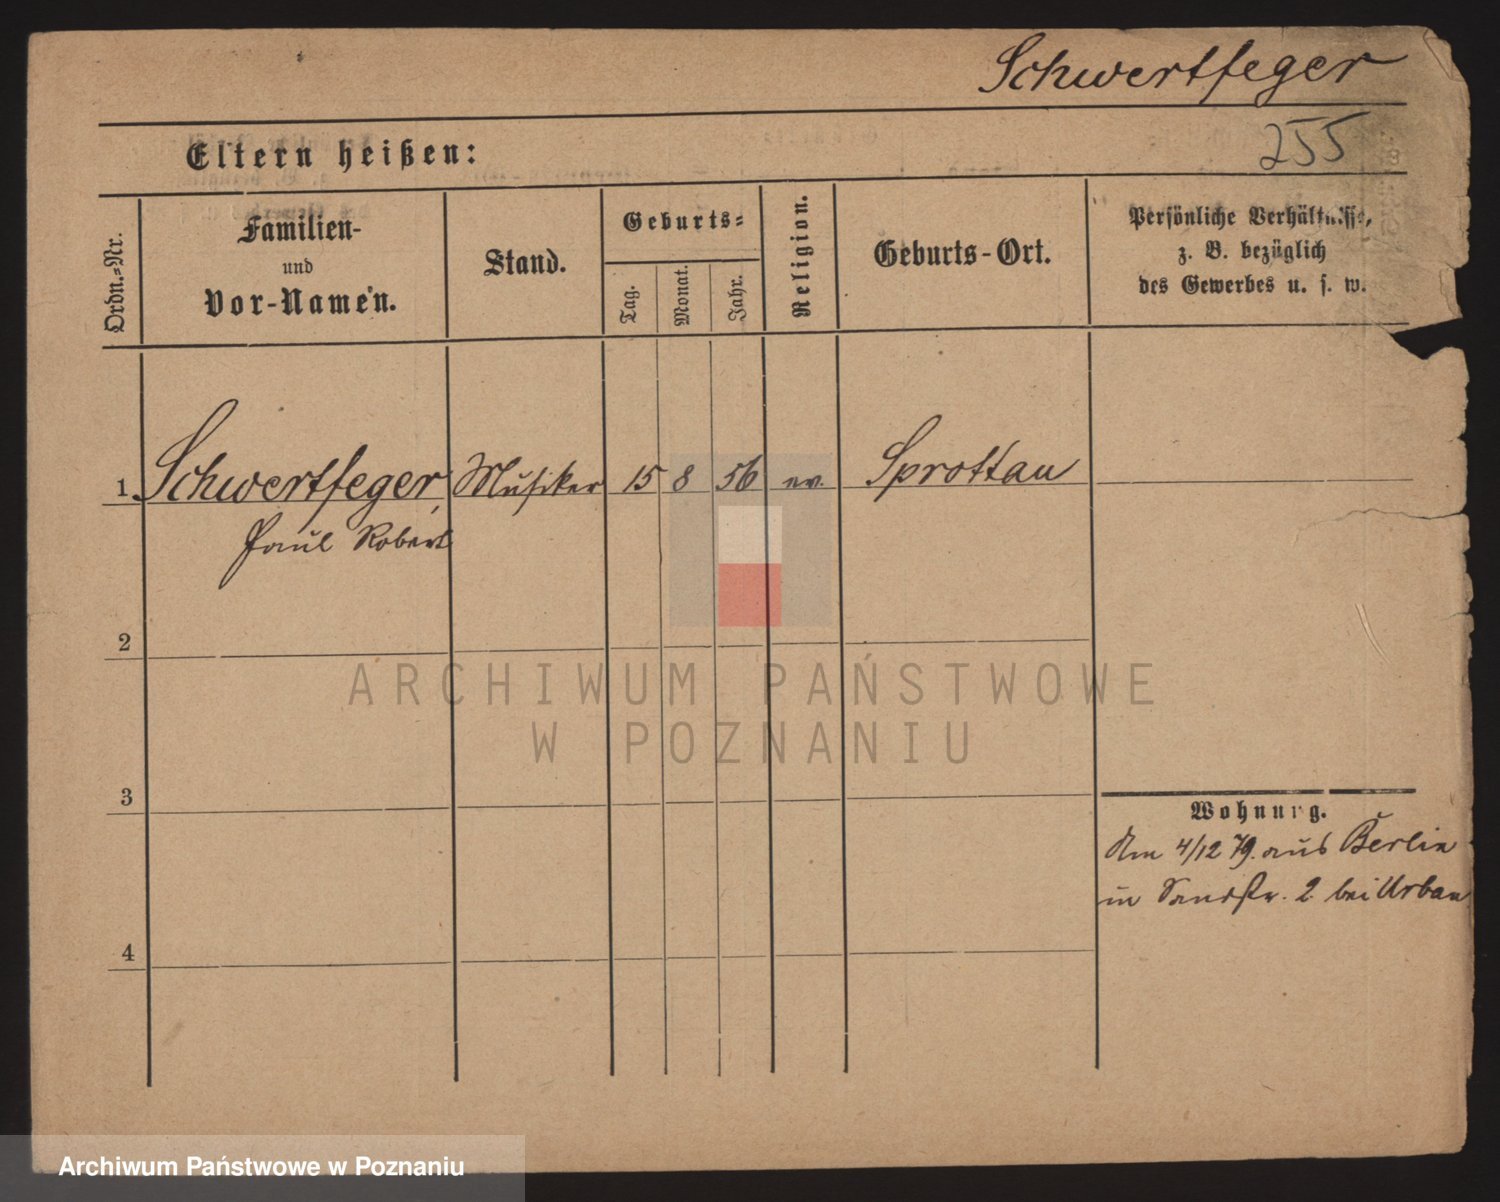 Schwertfeger
255
Eltern heißen:
Ordn.=Nr.
Familien-
und
Vor-Namen.
Stand.
Geburts=
Tag.
Monat.
Jahr.
Religion.
Geburts-Ort.
Persönliche Verhältnisse,
z. B. bezüglich
des Gewerbes u. s. w.
1 Schwertfeger Musiker 15 8 56 ev. Sprottau
Paul Robert
2
3
4
Wohnung.
Am 4/12 79. aus Berlin
in Sandstr. 2 bei Urban
ARCHIWUM PAŃSTWOWE
W POZNANIU
Archiwum Państwowe w Poznaniu